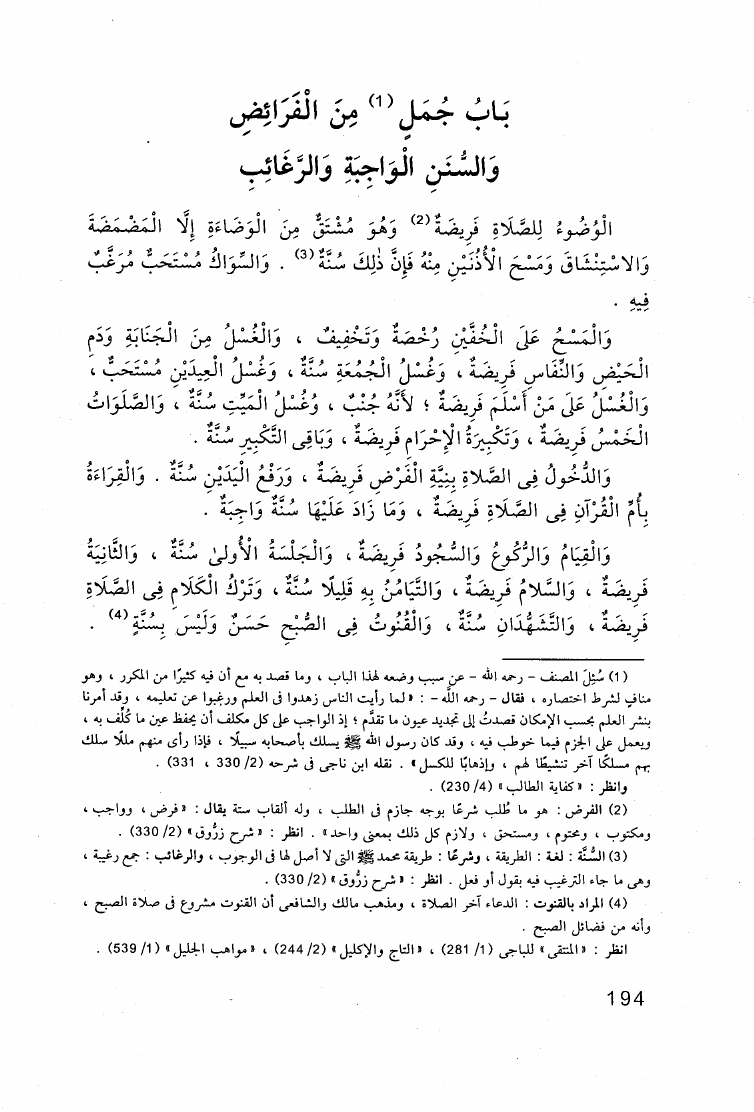 بَابُ جُمَلٍ (1) مِنَ الْفَرَائِضِ
وَالسُّنَنِ الْوَاجِبَةِ وَالرَّغَائِبِ
الْوُضُوءُ لِلصَّلَاةِ فَرِيضَةٌ (2) وَهُوَ مُشْتَقٌّ مِنَ الْوَضَاءَةِ إِلَّا الْمَضْمَضَةَ
وَالاسْتِنْشَاقَ وَمَسْحَ الْأُذُنَيْنِ مِنْهُ فَإِنَّ ذٰلِكَ سُنَّةٌ (3) . وَالسِّوَاكُ مُسْتَحَبٌّ مُرَغَّبٌ
فِيهِ .
وَالْمَسْحُ عَلَى الْخُفَّيْنِ رُخْصَةٌ وَتَخْفِيفٌ ، وَالْغُسْلُ مِنَ الْجَنَابَةِ وَدَمِ
الْحَيْضِ وَالنِّفَاسِ فَرِيضَةٌ ، وَغُسْلُ الْجُمُعَةِ سُنَّةٌ ، وَغُسْلُ الْعِيدَيْنِ مُسْتَحَبٌّ ،
وَالْغُسْلُ عَلَى مَنْ أَسْلَمَ فَرِيضَةٌ ؛ لأَنَّهُ جُنُبٌ ، وَغُسْلُ الْمَيِّتِ سُنَّةٌ ، وَالصَّلَوَاتُ
الْخَمْسُ فَرِيضَةٌ ، وَتَكْبِيرَةُ الْإِحْرَامِ فَرِيضَةٌ ، وَبَاقِى التَّكْبِيرِ سُنَّةٌ .
وَالدُّخُولُ فِى الصَّلَاةِ بِنِيَّةِ الْفَرْضِ فَرِيضَةٌ ، وَرَفْعُ الْيَدَيْنِ سُنَّةٌ . وَالْقِرَاءَةُ
بِأُمِّ الْقُرْآنِ فِى الصَّلَاةِ فَرِيضَةٌ ، وَمَا زَادَ عَلَيْهَا سُنَّةٌ وَاجِبَةٌ .
وَالْقِيَامُ وَالرُّكُوعُ وَالسُّجُودُ فَرِيضَةٌ ، وَالْجَلْسَةُ الْأُولىٰ سُنَّةٌ ، وَالثَّانِيَةُ
فَرِيضَةٌ ، وَالسَّلَامُ فَرِيضَةٌ ، وَالتَّيَامُنُ بِهِ قَلِيلًا سُنَّةٌ ، وَتَرْكُ الْكَلَامِ فِى الصَّلَاةِ
فَرِيضَةٌ ، وَالتَّشَهُّدَانِ سُنَّةٌ ، وَالْقُنُوتُ فِى الصُّبْحِ حَسَنٌ وَلَيْسَ بِسُنَّةٍ (4) .
(1) سُئِلَ المصنف - رحمه الله - عن سبب وضعه لهذا الباب ، وما قصد به مع أن فيه كثيرًا من المكرر ، وهو
منافٍ لشرط اختصاره ، فقال - رحمه اللَّه - : «لما رأيت الناس زهدوا فى العلم ورغبوا عن تعليمه ، وقد أمرنا
بنشر العلم بحسب الإمكان قصدتُ إلى تجديد عيون ما تقدَّم ؛ إذ الواجب على كل مكلف أن يحفظ عين ما كُلِّف به ،
ويعمل على الجزم فيما خوطب فيه ، وقد كان رسول الله ﷺ يسلك بأصحابه سبيلًا ، فإذا رأى منهم مللًا سلك
بهم مسلكًا آخر تنشيطًا لهم ، وإذهابًا للكسل» . نقله ابن ناجى فى شرحه (2/ 330 ، 331) .
وانظر : «كفاية الطالب» (4/ 230) .
(2) الفرض : هو ما طُلب شرعًا بوجه جازم فى الطلب ، وله ألقاب ستة يقال : «فرض ، وواجب ،
ومكتوب ، ومحتوم ، ومستحق ، ولازم كل ذلك بمعنى واحد» . انظر : «شرح زرُّوق» (2/ 330) .
(3) السُّنَّة : لغة : الطريقة ، وشرعًا : طريقة محمد ﷺ التى لا أصل لها فى الوجوب ، والرغائب : جمع رغيبة ،
وهى ما جاء الترغيب فيه بقول أو فعل . انظر : «شرح زرُّوق» (2/ 330) .
(4) المراد بالقنوت : الدعاء آخر الصلاة ، ومذهب مالك والشافعى أن القنوت مشروع فى صلاة الصبح ،
وأنه من فضائل الصبح .
انظر : «المنتقى» للباجى (1/ 281) ، «التاج والإكليل» (2/ 244) ، «مواهب الجليل» (1/ 539) .
194